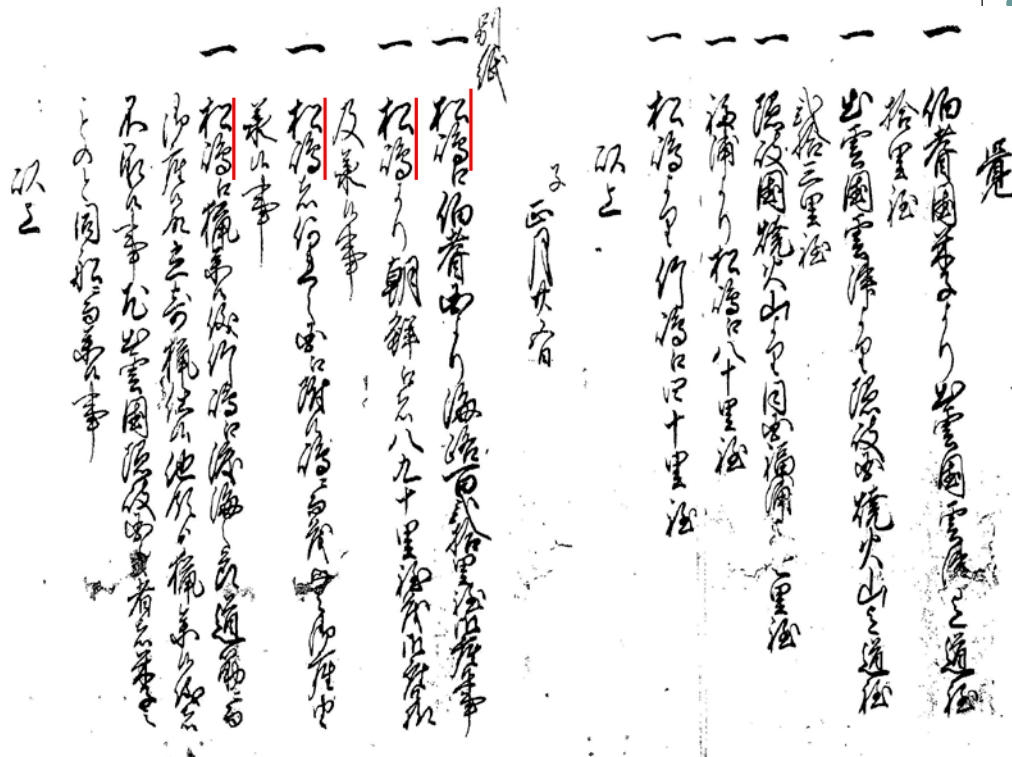 覚
一 伯耆国米子より出雲国雲津迄道程
拾里程
一 出雲国雲津より隠岐国焼火山迄道程
弐拾三里程
一 隠岐国焼火山より同国福浦迄七里程
一 福浦より松嶋江八十里程
一 松嶋より竹嶋江四十里程
以上
子 正月廿五日
別紙
一 松嶋江伯耆国より海路百弐拾里程御座候事
一 松嶋より朝鮮江は八九十里程茂御座候様
及承候事
一 松嶋は何連之国江附候嶋二而茂無御座由
承候事
一 松嶋江猟参候儀竹嶋江渡海之節道筋二而
御座候故立寄猟仕候他領より猟参候儀は
不承候事尤出雲国隠岐国之者は米子之
ものと同船二而参候事
以上